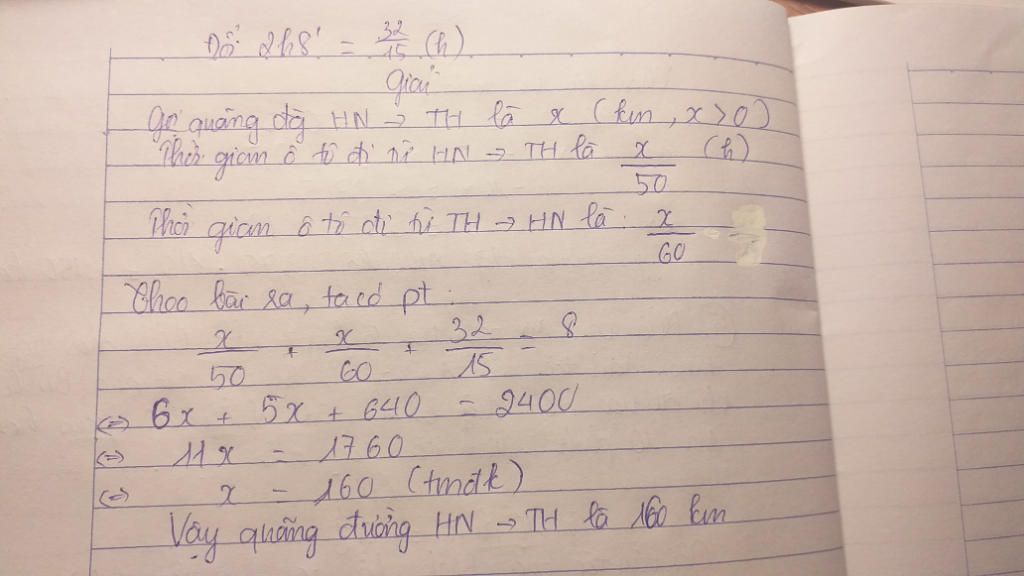 Đổi 2h8' = 32/15 (h)
Giải
Gọi quãng đg HN → TH là x (km, x > 0)
Thời gian ô tô đi từ HN → TH là x/50 (h)
Thời gian ô tô đi từ TH → HN là: x/60
Theo bài ra, ta có pt:
x/50 + x/60 + 32/15 = 8
<=> 6x + 5x + 640 = 2400
<=> 11x = 1760
<=> x = 160 (tmđk)
Vậy quãng đường HN → TH là 160 km